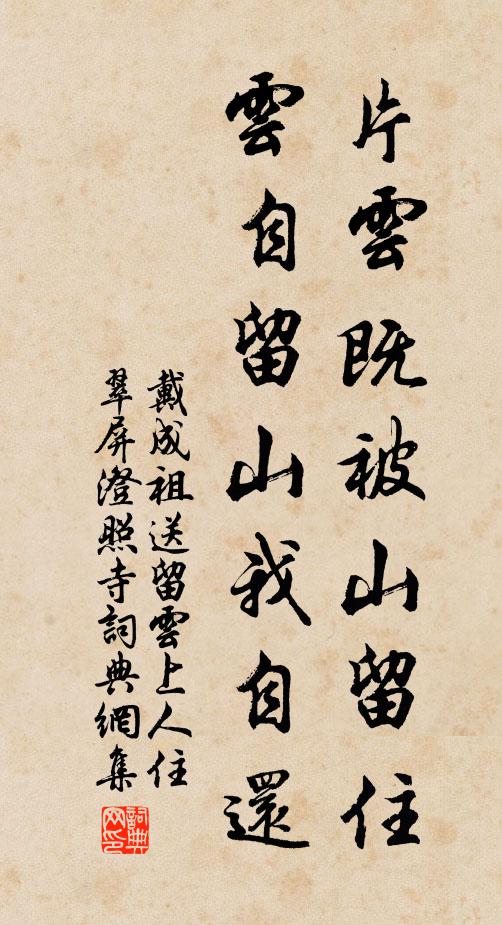 片雲既被山留住
雲自留山我自還
戴成祖送留雲上人住
翠屏澄照寺詞典網集
詞典网印